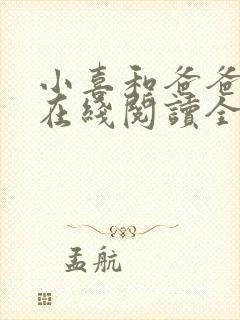 小喜和爸爸
在綫閱讀全
孟航